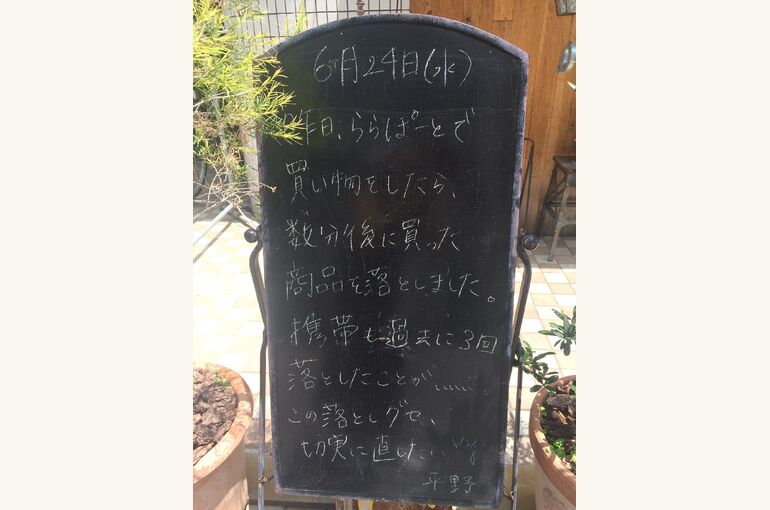 6月24日(水)
昨日、ららぽーとで
買い物をしたら、
数分後に買った
商品を落としました。
携帯も過去に3回
落としたことが……。
この落としグセ、
切実に直したい
平野